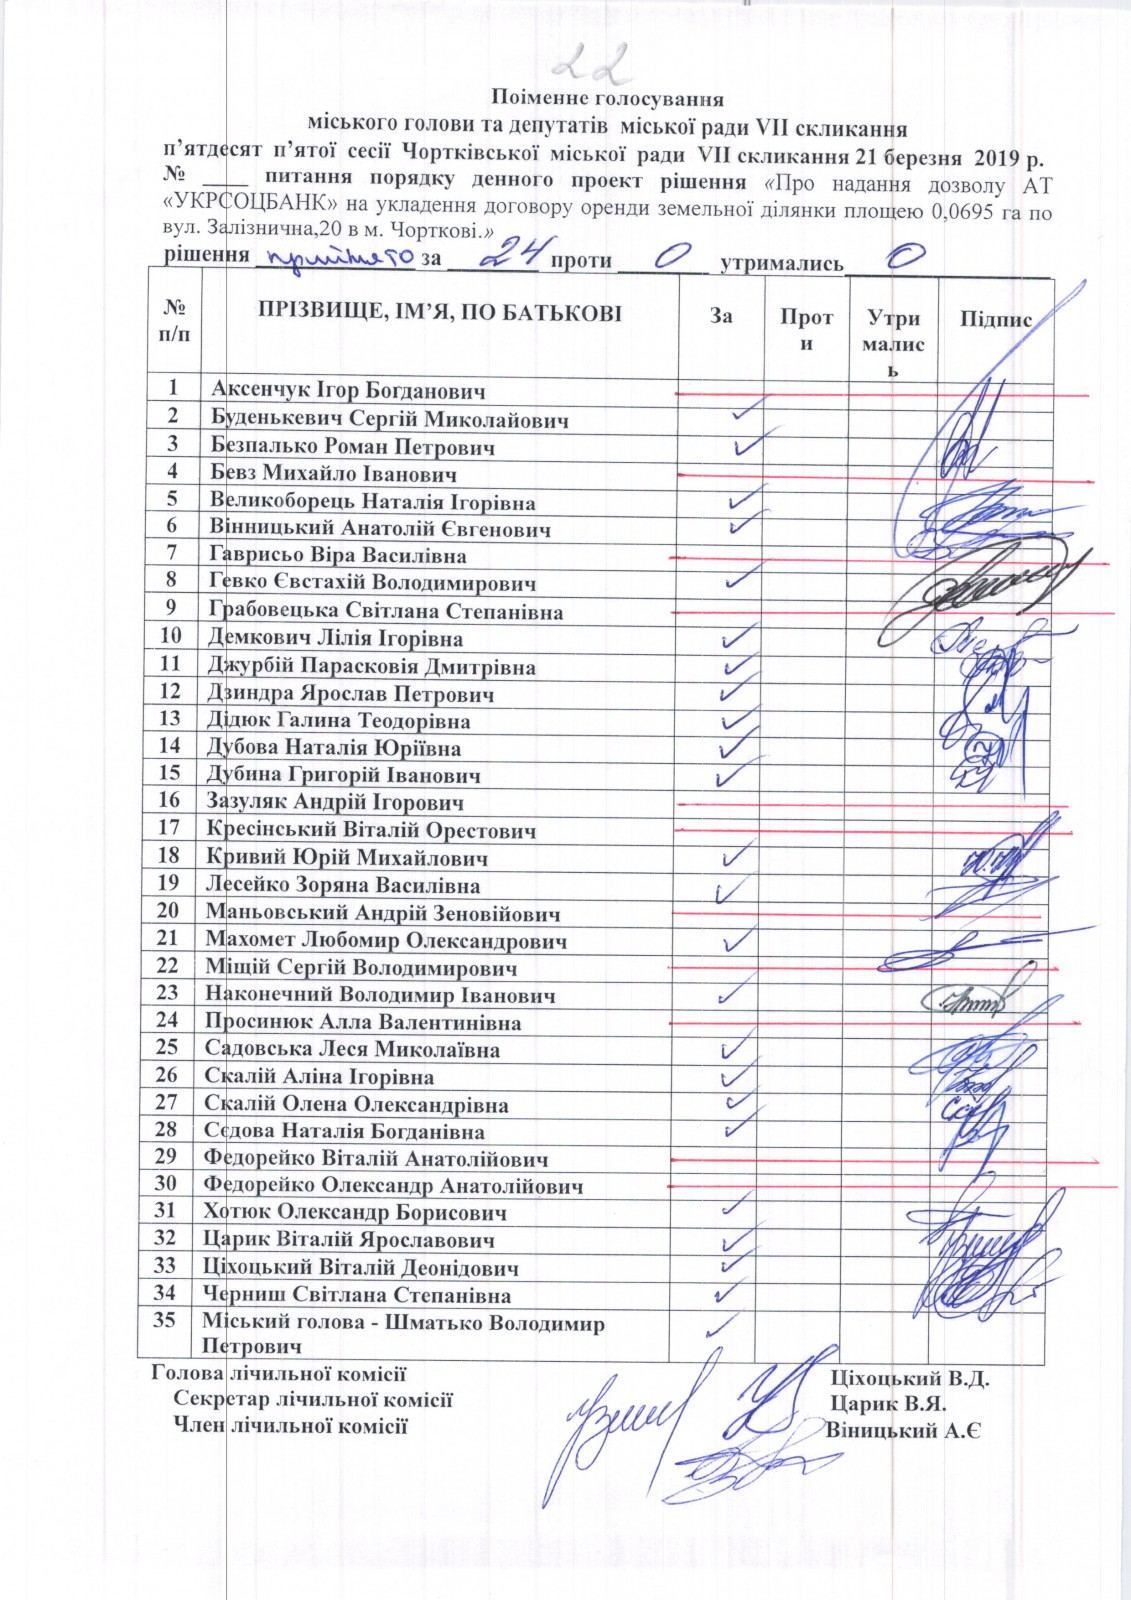 22
Поіменне голосування
міського голови та депутатів міської ради VII скликання
п’ятдесят п’ятої сесії Чортківської міської ради VII скликання 21 березня 2019 р.
№ ____ питання порядку денного проект рішення «Про надання дозволу АТ
«УКРСОЦБАНК» на укладення договору оренди земельної ділянки площею 0,0695 га по
вул. Залізнична,20 в м. Чорткові.»
рішення прийнято за 24 проти 0 утримались 0
№ п/п ПРІЗВИЩЕ, ІМ’Я, ПО БАТЬКОВІ За Проти Утримались Підпис
1 Аксенчук Ігор Богданович
2 Буденькевич Сергій Миколайович ✓
3 Безпалько Роман Петрович ✓
4 Бевз Михайло Іванович
5 Великоборець Наталія Ігорівна ✓
6 Вінницький Анатолій Євгенович ✓
7 Гаврисьо Віра Василівна
8 Гевко Євстахій Володимирович ✓
9 Грабовецька Світлана Степанівна
10 Демкович Лілія Ігорівна ✓
11 Джурбій Парасковія Дмитрівна ✓
12 Дзиндра Ярослав Петрович ✓
13 Дідюк Галина Теодорівна ✓
14 Дубова Наталія Юріївна ✓
15 Дубина Григорій Іванович ✓
16 Зазуляк Андрій Ігорович
17 Кресінський Віталій Орестович
18 Кривий Юрій Михайлович ✓
19 Лесейко Зоряна Василівна ✓
20 Маньовський Андрій Зеновійович
21 Махомет Любомир Олександрович ✓
22 Міщій Сергій Володимирович
23 Наконечний Володимир Іванович ✓
24 Просинюк Алла Валентинівна
25 Садовська Леся Миколаївна ✓
26 Скалій Аліна Ігорівна ✓
27 Скалій Олена Олександрівна ✓
28 Сєдова Наталія Богданівна ✓
29 Федорейко Віталій Анатолійович
30 Федорейко Олександр Анатолійович
31 Хотюк Олександр Борисович ✓
32 Царик Віталій Ярославович ✓
33 Ціхоцький Віталій Деонідович ✓
34 Черниш Світлана Степанівна ✓
35 Міський голова - Шматько Володимир ✓
Петрович
Голова лічильної комісії Ціхоцький В.Д.
Секретар лічильної комісії Царик В.Я.
Член лічильної комісії Віницький А.Є